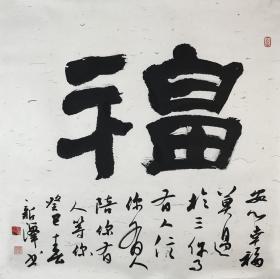 福
安心幸福
莫過
於三件事
有人信
你有人
陪你有
人等你
癸巳春
新澤书